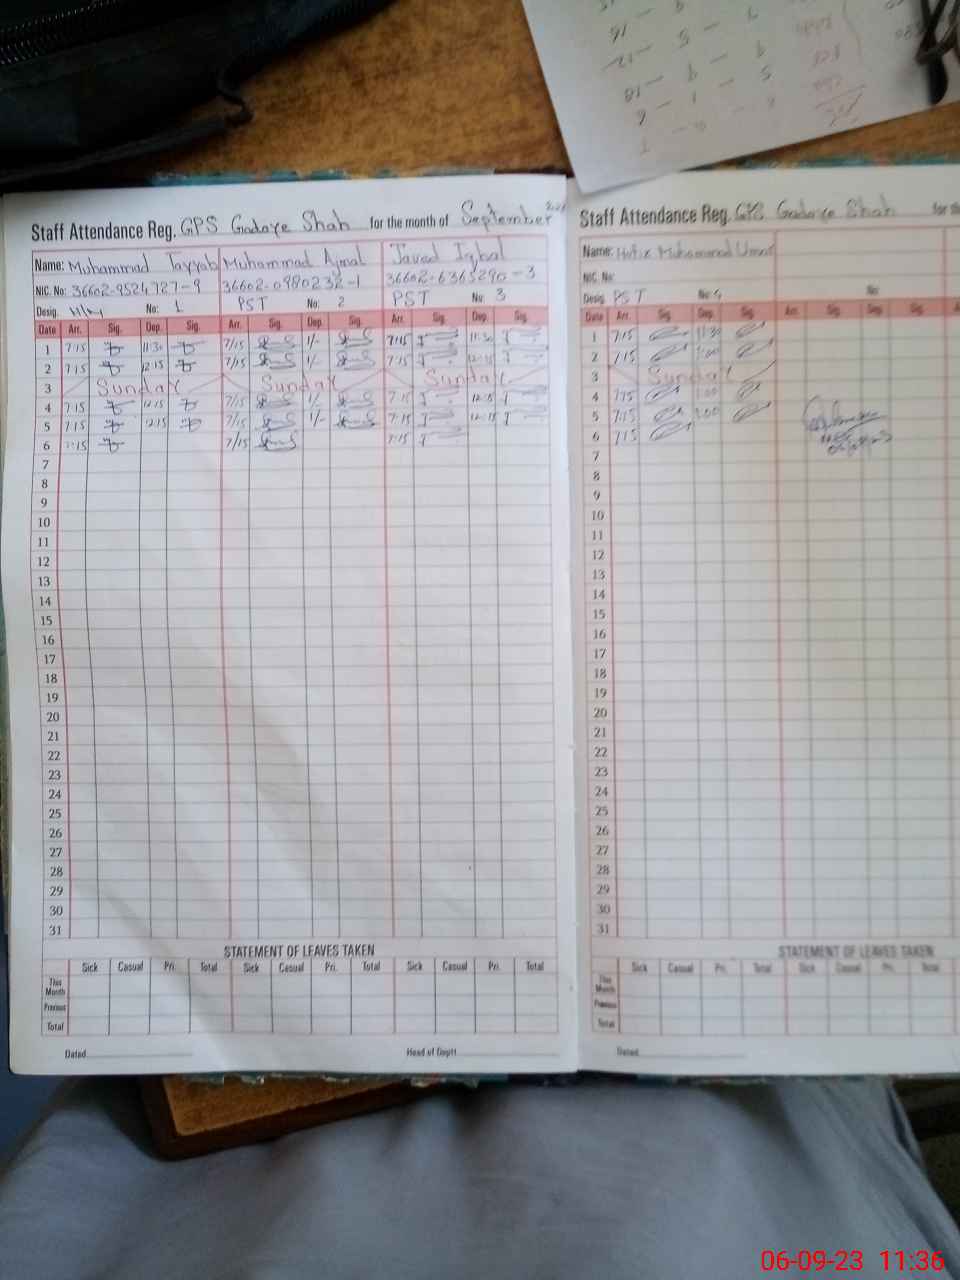 Staff Attendance Reg. GPS Gadaye Shah for the month of September
Name: Muhammad Tayyab Muhammad Ajmal Javed Iqbal
NIC. No: 36602-9524727-9 36602-0980232-1 36602-6365290-3
Desig. No: 1 PST No: 2 PST No: 3
Date Arr. Sig. Dep. Sig. Arr. Sig. Dep. Sig. Arr. Sig. Dep. Sig.
1 7:15 11:30 7/15 1/- 7:15 11:30
2 7:15 12:15 7/15 1/- 7:15 12:15
3 Sunday Sunday Sunday
4 7:15 12:15 7/15 1/- 7:15 12:15
5 7:15 12:15 7/15 1/- 7:15 12:15
6 7:15 7/15 7:15
7
8
9
10
11
12
13
14
15
16
17
18
19
20
21
22
23
24
25
26
27
28
29
30
31
STATEMENT OF LEAVES TAKEN
Sick Casual Pri. Total Sick Casual Pri. Total Sick Casual Pri. Total
This Month
Previous
Total
Dated Head of Deptt
Staff Attendance Reg. GPS Gadaye Shah for th
Name: Hafiz Muhammad Umar
NIC. No:
Desig. PST No: 4 No:
Date Arr. Sig. Dep. Sig. Arr. Sig. Dep. Sig. Arr.
1 7:15 11:30
2 7:15 1:00
3 Sunday
4 7:15 1:00
5 7:15 1:00
6 7:15
7
8
9
10
11
12
13
14
15
16
17
18
19
20
21
22
23
24
25
26
27
28
29
30
31
STATEMENT OF LEAVES TAKEN
Sick Casual Pri. Total Sick Casual Pri. Total
This Month
Previous
Total
Dated
06-09-23 11:36